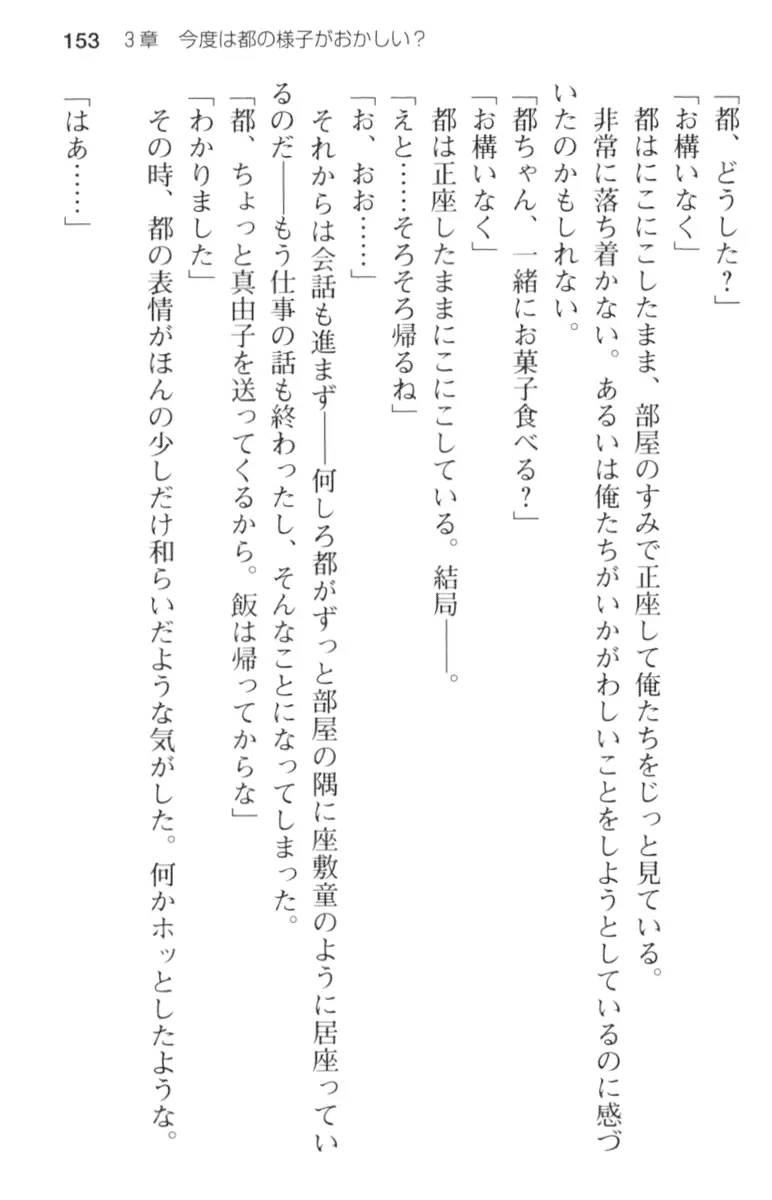 153 3章 今度は都の様子がおかしい?
「都、どうした?」
「お構いなく」
都はにこにこしたまま、部屋のすみで正座して俺たちをじっと見ている。
非常に落ち着かない。あるいは俺たちがいかがわしいことをしようとしているのに感づ
いたのかもしれない。
「都ちゃん、一緒にお菓子食べる?」
「お構いなく」
都は正座したままにこにこしている。結局――。
「えと……そろそろ帰るね」
「お、おお……」
それからは会話も進まず――何しろ都がずっと部屋の隅に座敷童のように居座ってい
るのだ――もう仕事の話も終わったし、そんなことになってしまった。
「都、ちょっと真由子を送ってくるから。飯は帰ってからな」
「わかりました」
その時、都の表情がほんの少しだけ和らいだような気がした。何かホッとしたような。
「はぁ……」